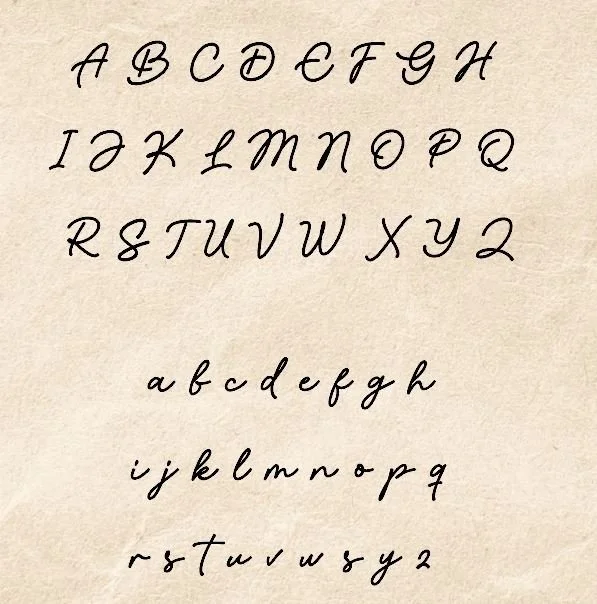 A B C D E F G H
I J K L M N O P Q
R S T U V W X Y Z
a b c d e f g h
i j k l m n o p q
r s t u v w s y z